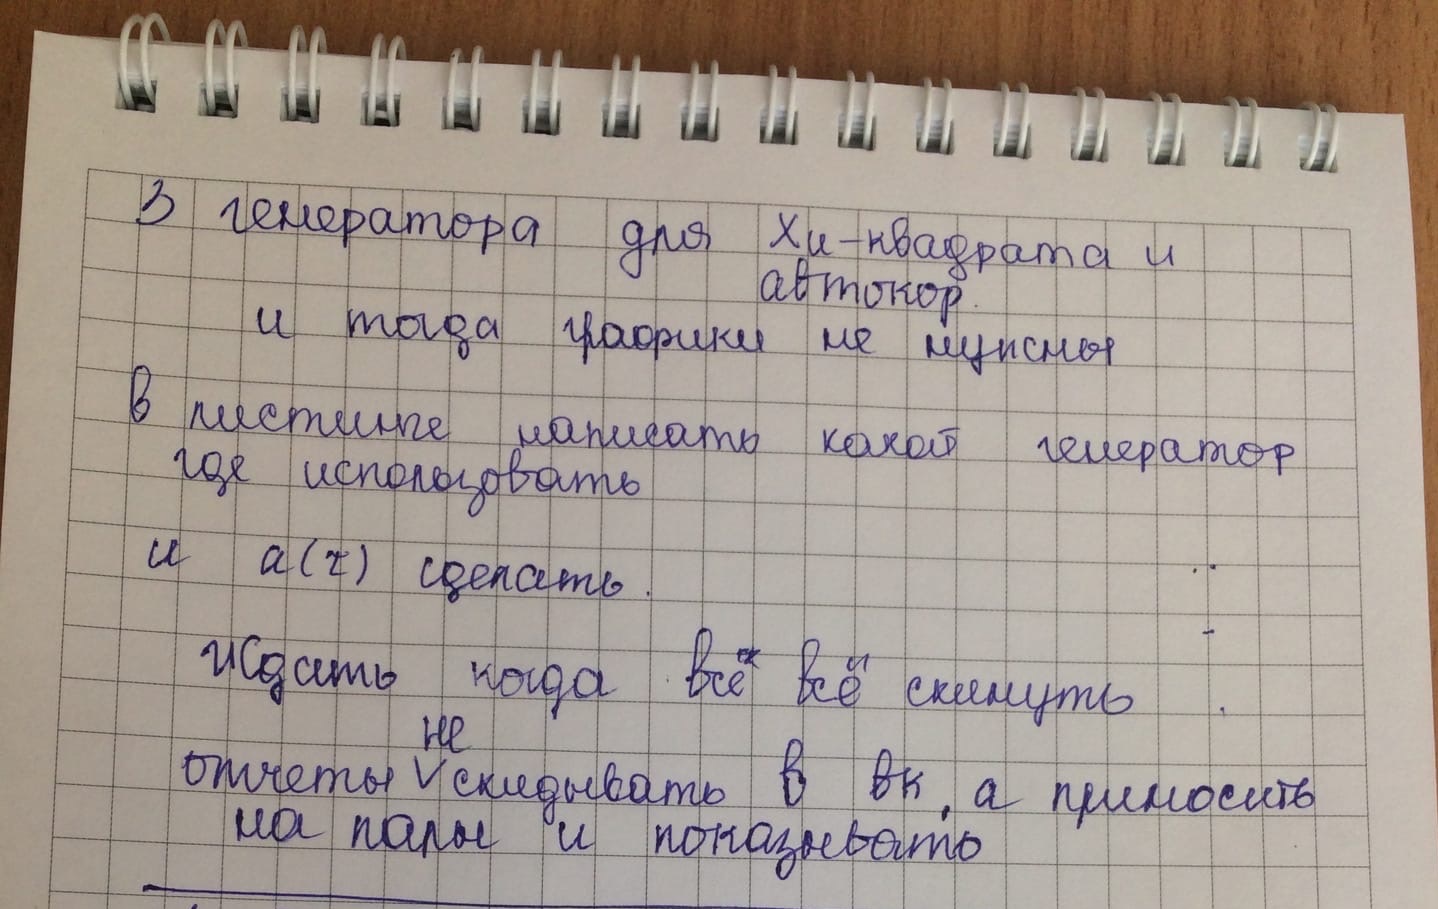 3 генератора для Хи-квадрата и
автокор.
и тогда графики не нужны
в листинге написать какой генератор
где использовать
и a(τ) сделать.
ждать когда всё всё скинуть
не
отчеты V скидывать в вк, а приносить
на пары и показывать